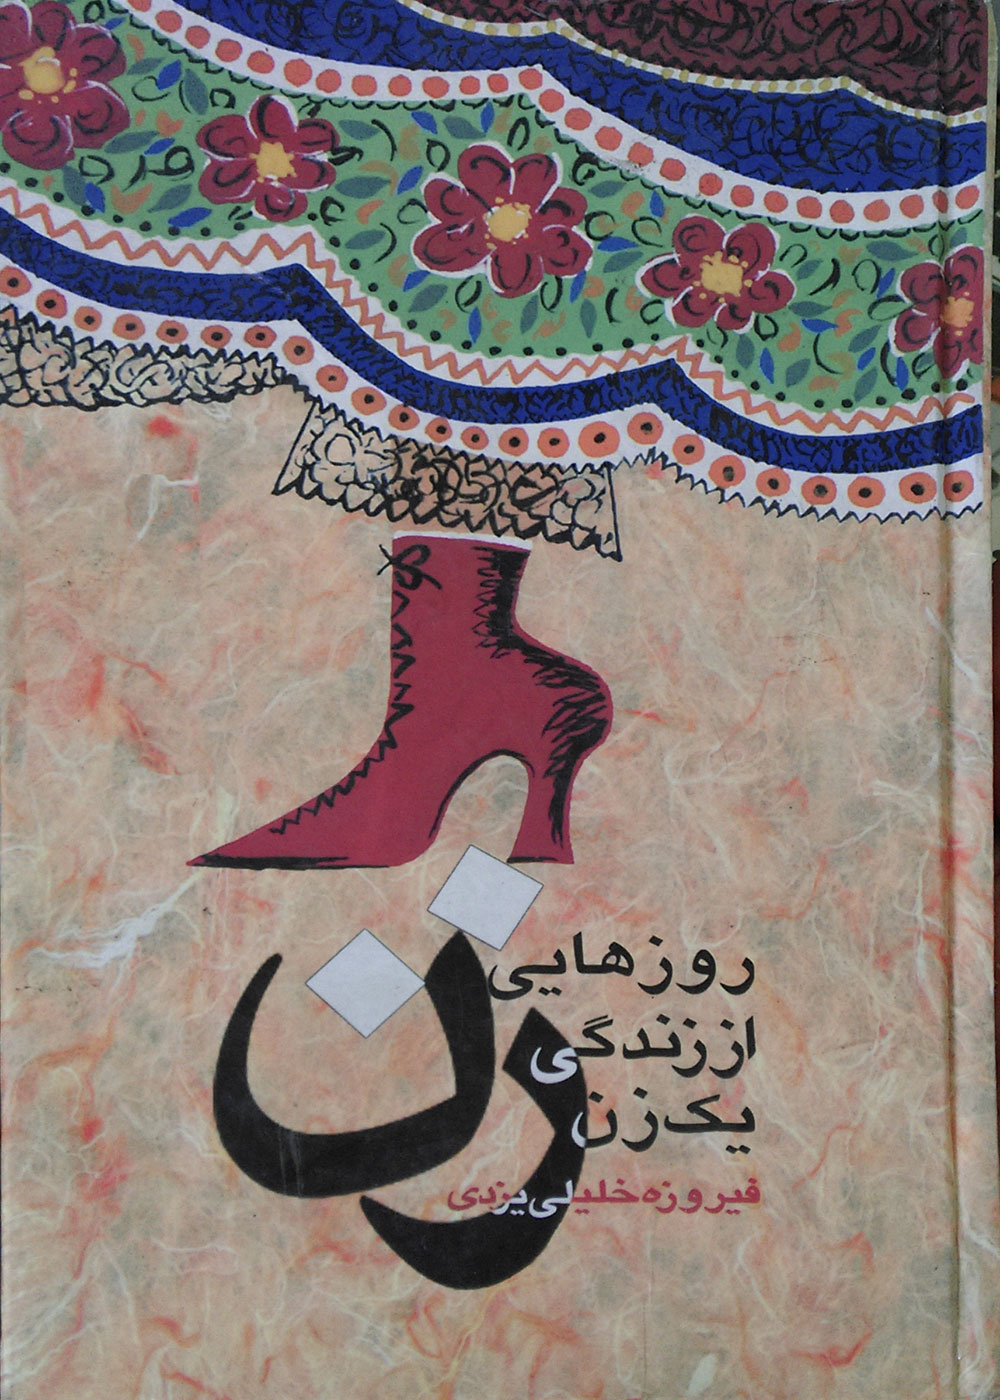 زن
روزهایی
از زندگی
یک زن
فیروزه خلیلی یزدی